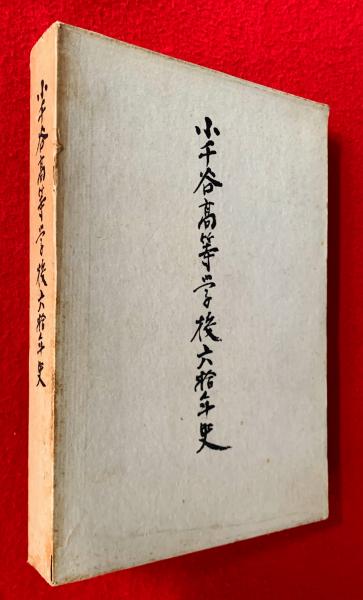 小千谷高等学校六拾年史
小千谷高等学校六拾年史